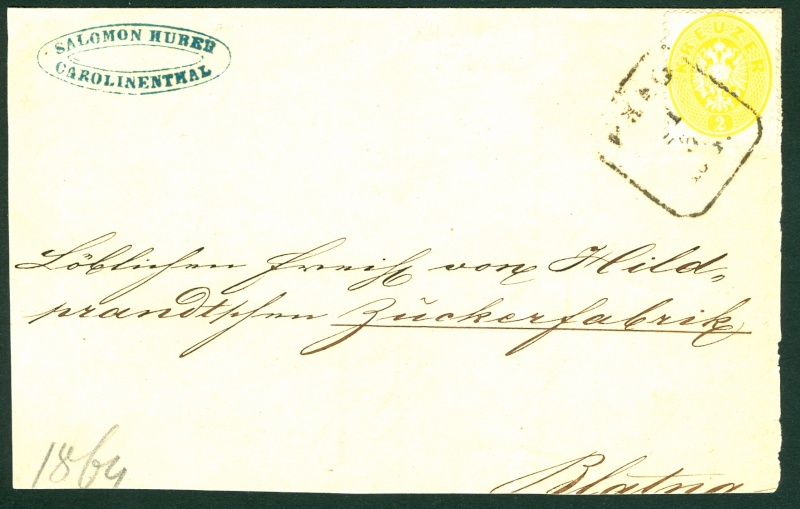 SALOMON HUBER
CAROLINENTHAL
KREUZER
2
PRAG
Löblichen Freih von Hild„
prandt'schen Zuckerfabrik
1864
Blatna